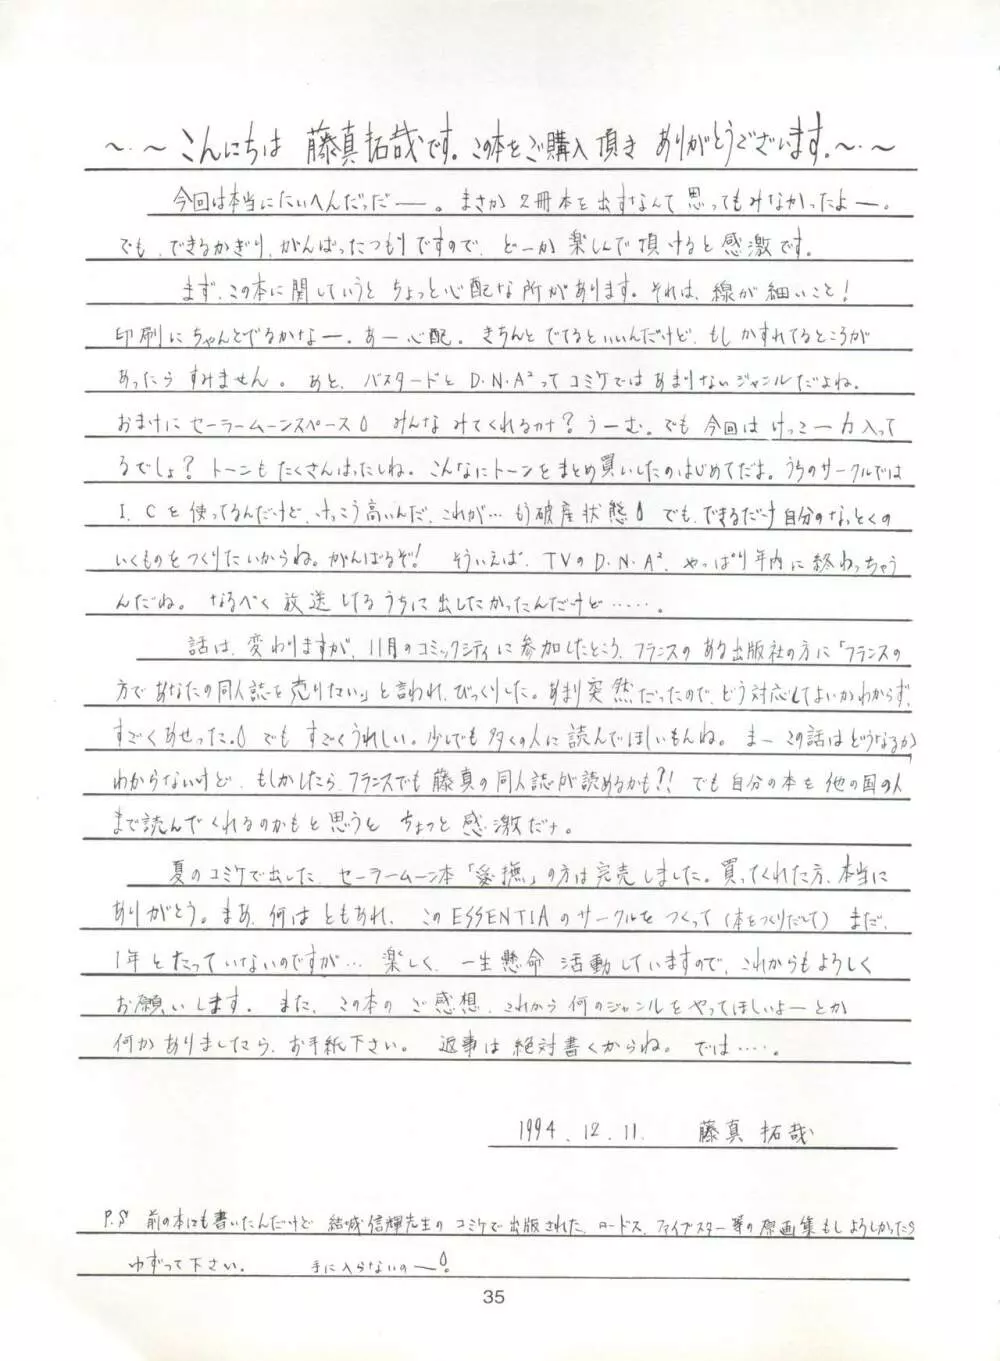 ～・～ こんにちは 藤真拓哉です。この本をご購入頂き ありがとうございます。～・～
今回は本当にたいへんだっだー。まさか2冊本を出すなんて思ってもみなかったよー。
でも、できるかぎり、がんばったつもりですので、どーか楽しんで頂けると感激です。
まず、この本に関していうと ちょっと心配な所があります。それは、線が細いこと!
印刷にちゃんとでるかなー。あー心配。きちんとでてるといいんだけど、もしかすれてるところが
あったら すみません。あと、バスタードと D・N・A²ってコミケではあまりないジャンルだよね。
おまけにセーラームーンスペース みんなみてくれるカナ? うーむ。でも今回は けっこー力入って
るでしょ? トーンもたくさんはったしね。こんなにトーンをまとめ買いしたのはじめてだよ。うちのサークルでは
I.Cを使ってるんだけど、けっこう高いんだ、これが… もう破産状態 でも、できるだけ自分のなっとくの
いくものをつくりたいからね。がんばるぞ! そういえば、TVのD・N・A²、やっぱり年内に終わっちゃう
んだね。なるべく放送してるうちに出したかったんだけど……。
話は、変わりますが、11月のコミックシティに参加したところ、フランスのある出版社の方に「フランスの
方であなたの同人誌を売りたい」と言われ、びっくりした。あまり突然だったので、どう対応してよいかわからず、
すごくあせった。 でも すごくうれしい。少しでも多くの人に読んでほしいもんね。まーこの話はどうなるか
わからないけど、もしかしたら、フランスでも藤真の同人誌が読めるかも?! でも自分の本を他の国の人
まで読んでくれるのかもと思うと ちょっと感激だナ。
夏のコミケで出した、セーラームーン本「愛撫」の方は完売しました。買ってくれた方、本当に
ありがとう。まあ、何はともあれ、このESSENTIAのサークルをつくって(本をつくりだして)まだ、
1年とたっていないのですが… 楽しく、一生懸命 活動していますので、これからもよろしく
お願いします。また、この本の ご感想、これから何のジャンルをやってほしいよーとか
何かありましたら、お手紙下さい。 返事は絶対書くからね。では……。
1994.12.11. 藤真 拓哉
P.S 前の本にも書いたんだけど 結城信輝先生の コミケで出版された、ロードス、ファイブスター等の原画集もしよろしかったら
ゆずって下さい。 手に入らないのー!
35